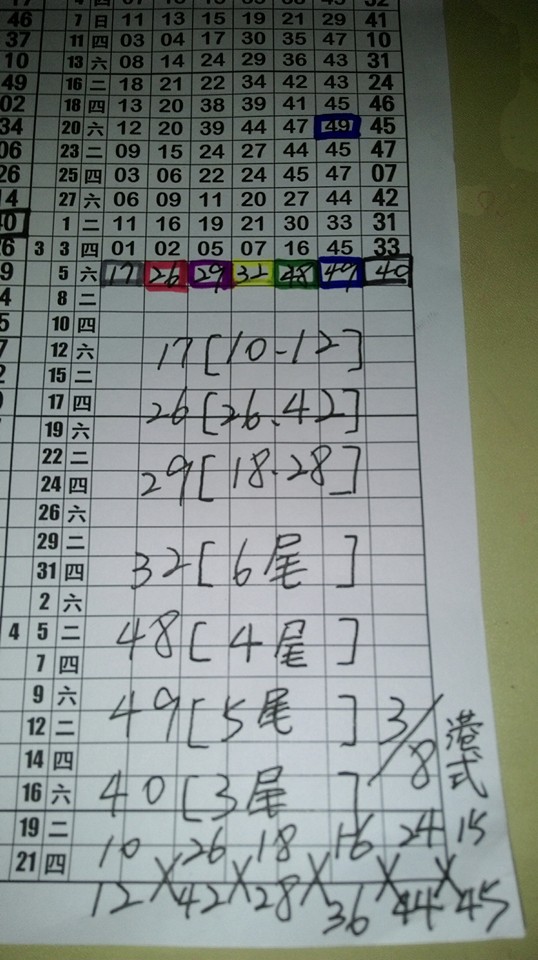 46 7 日 11 13 15 19 21 29 41
37 11 四 03 04 17 30 35 47 10
10 13 六 08 14 24 29 36 43 31
49 16 二 18 21 22 34 42 43 24
02 18 四 13 20 38 39 41 45 46
34 20 六 12 20 39 44 47 49 45
06 23 二 09 15 24 27 44 45 47
26 25 四 03 06 22 24 45 47 07
14 27 六 06 09 11 20 27 44 42
1 二 11 16 19 21 30 33 31
3 3 四 01 02 05 07 16 45 33
5 六 17 26 29 32 48 49 40
8 二
10 四
12 六
17[10-12]
15 二
17 四
26[26.42]
19 六
22 二
29[18.28]
24 四
26 六
29 二
32[6尾]
31 四
2 六
4 5 二
48[4尾]
7 四
9 六
49[5尾]
12 二
3/8 港式
14 四
16 六
40[3尾]
19 二
10 26 18 16 24 15
21 四
12 X 42 X 28 X 36 X 44 X 45